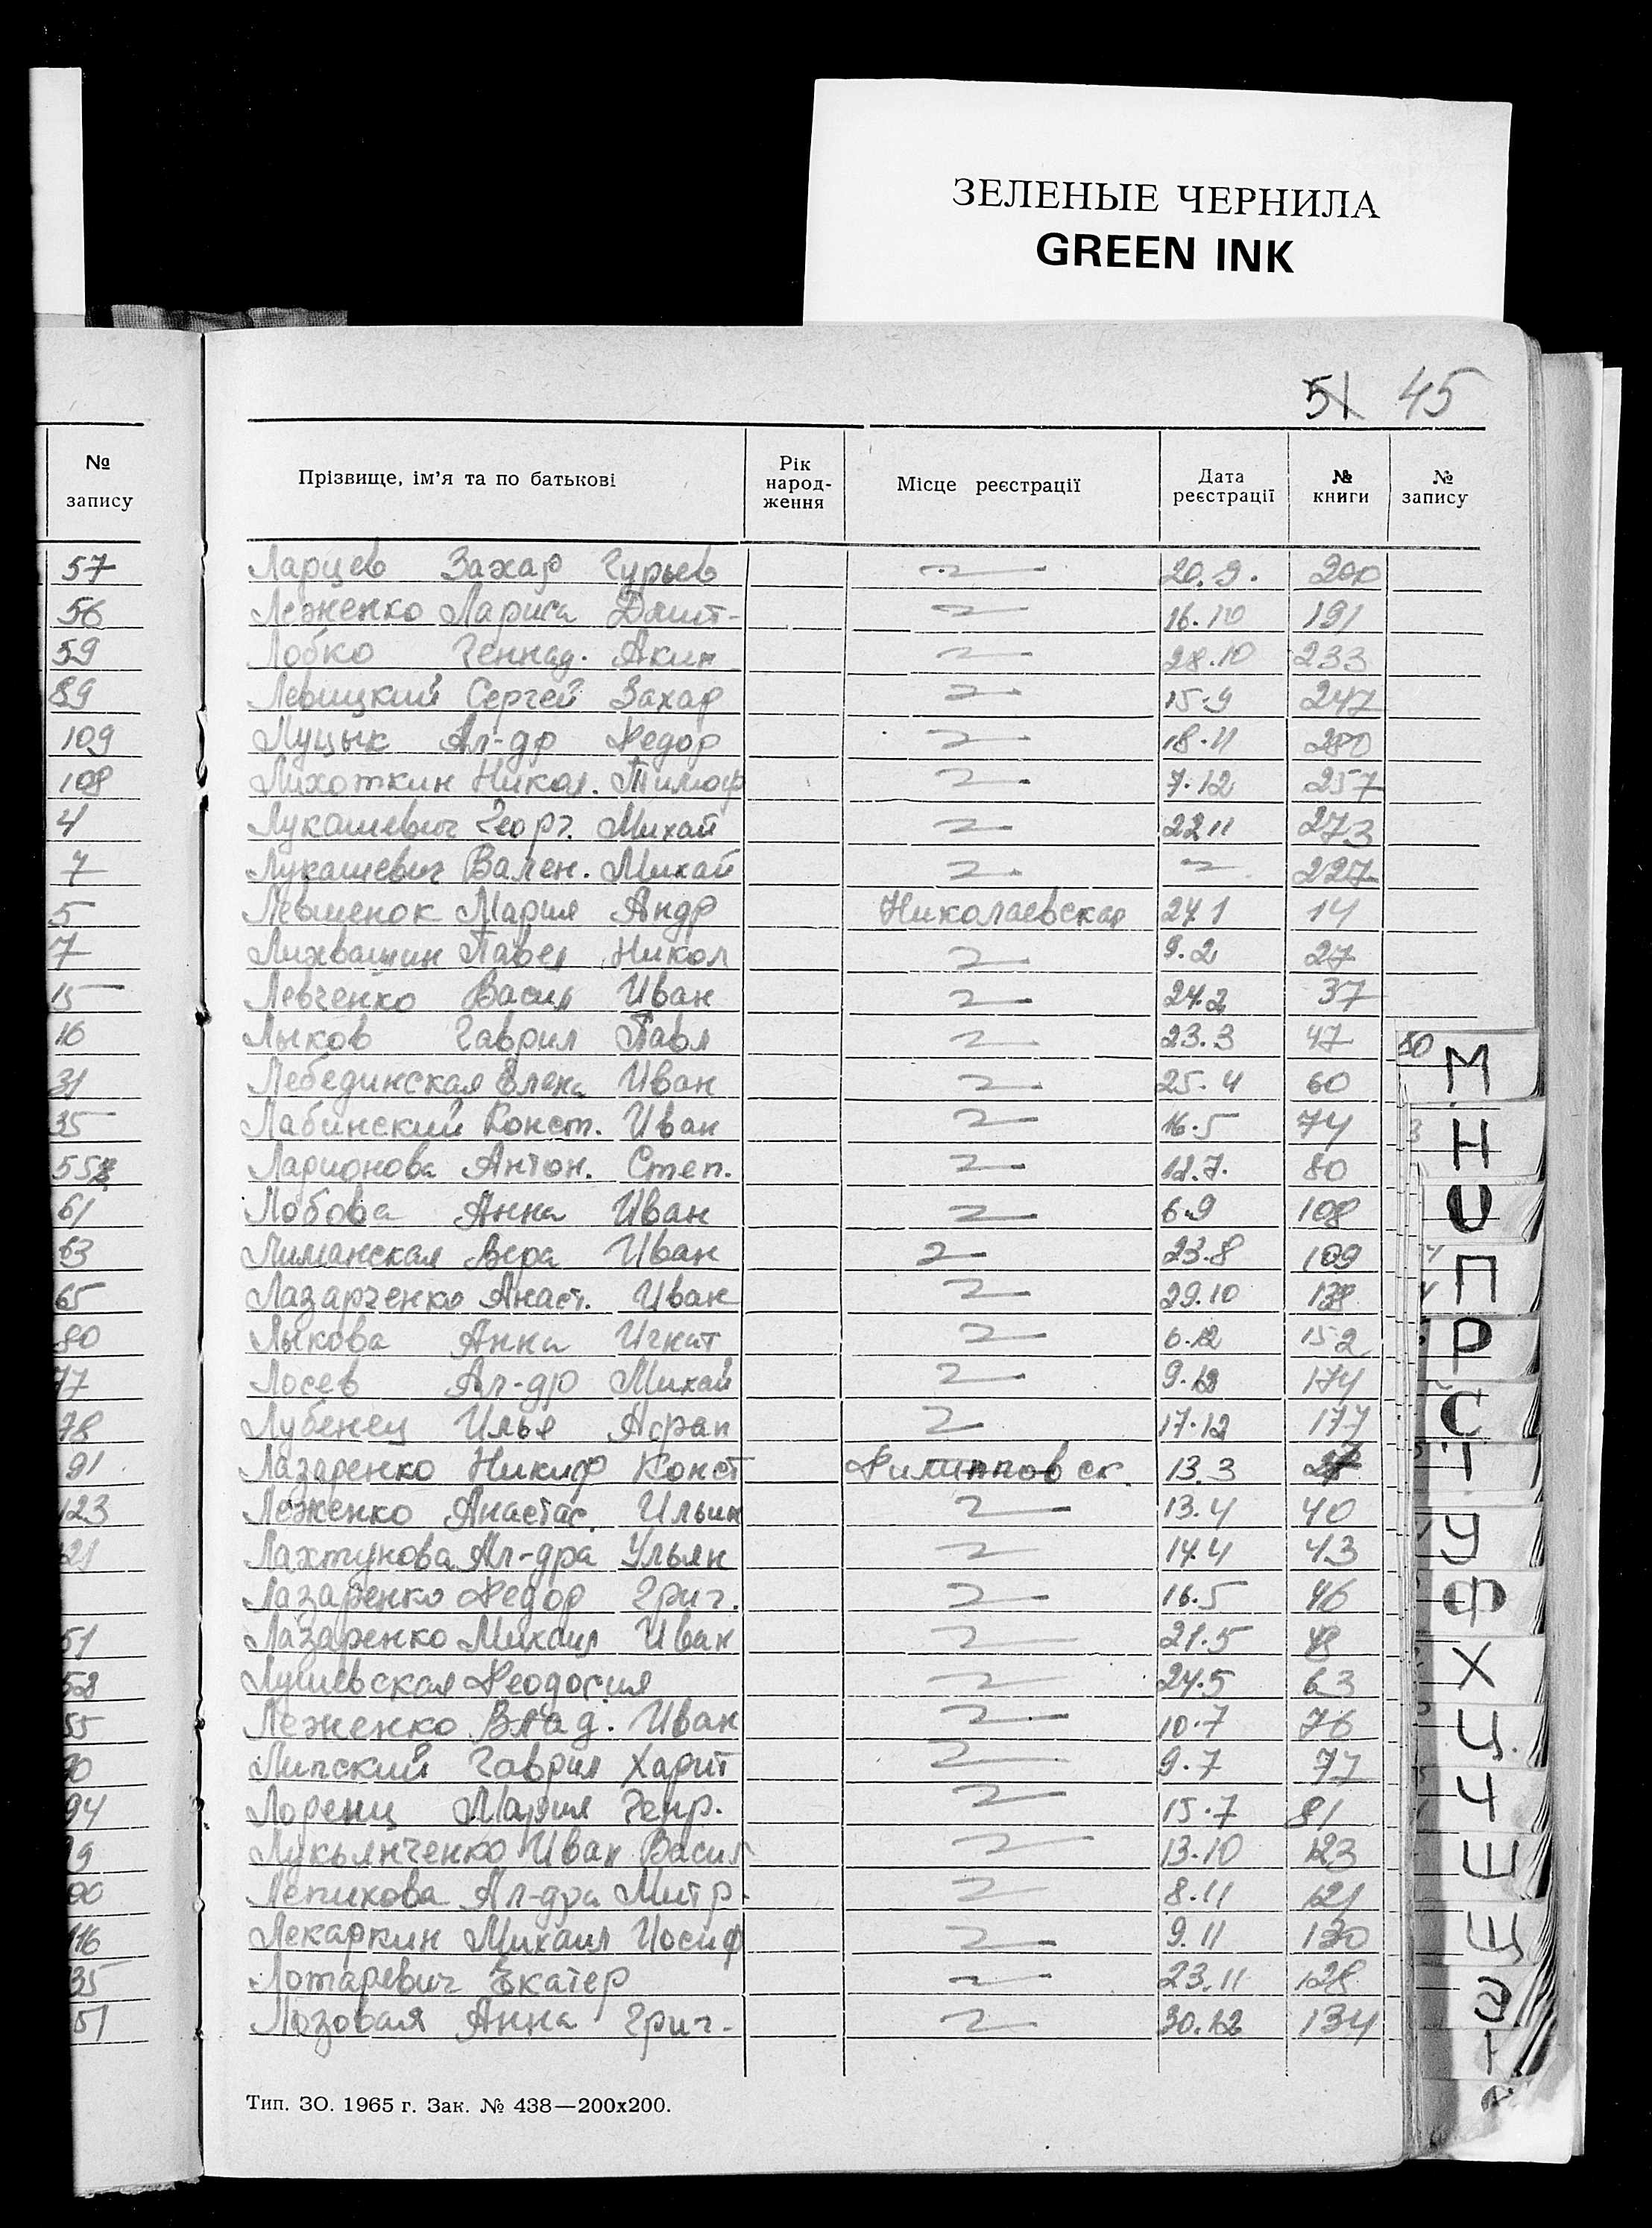 ЗЕЛЕНЫЕ ЧЕРНИЛА
GREEN INK
51 45
№ запису
Прізвище, ім'я та по батькові
Рік народ-ження
Місце реєстрації
Дата реєстрації
№ книги
№ запису
57 Ларцев Захар Гурьев 20.9. 200
56 Леженко Лариса Дмит- 16.10 191
59 Лобко Геннад. Аким 28.10 233
89 Левицкий Сергей Захар 15.9 247
109 Луцык Ал-др Федор 18.11 280
108 Лихоткин Никол. Тимоф 7.12 257
4 Лукашевич Георг. Михай 22 11 273
7 Лукашевич Вален. Михай 227
5 Левшенок Мария Андр Николаевская 27 1 14
7 Лихвашин Павел Никол 9.2 27
15 Левченко Васил Иван 24.2 37
16 Лыков Гаврил Павл 23.3 47
31 Лебединская Елена Иван 25.4 60
35 Лабинский Конст. Иван 16.5 74
Ларионова Антон. Степ. 12.7. 80
61 Лобова Анна Иван 6.9 108
63 Лиманская Вера Иван 23.8 109
65 Лазарченко Анаст. Иван 29.10 138
80 Лыкова Анна Игнат 6.12 152
77 Лосев Ал-др Михай 9.12 174
78 Лубенец Илья Афан 17.12 177
91 Лазаренко Никиф Конст Филипповск. 13.3
123 Леженко Анастас. Ильин 13.4 40
121 Лахтунова Ал-дра Ульян 14.4 43
Лазаренко Федор Григ. 16.5 46
51 Лазаренко Михаил Иван 21.5 48
52 Лушевская Феодосия 24.5 63
55 Леженко Влад. Иван 10.7 76
Липский Гаврил Харит 9.7 77
94 Лоренц Мария Генр. 15.7 81
Лукьянченко Иван Васил 13.10 123
Лепихова Ал-дра Митр. 8.11 121
116 Лекаркин Михаил Иосиф 9.11 130
35 Лотаревич Екатер 23.11 128
51 Лозовая Анна Григ. 30.12 134
М
Н
О
П
Р
С
Т
У
Ф
Х
Ц
Ч
Ш
Щ
Э
Тип. ЗО. 1965 г. Зак. № 438—200х200.